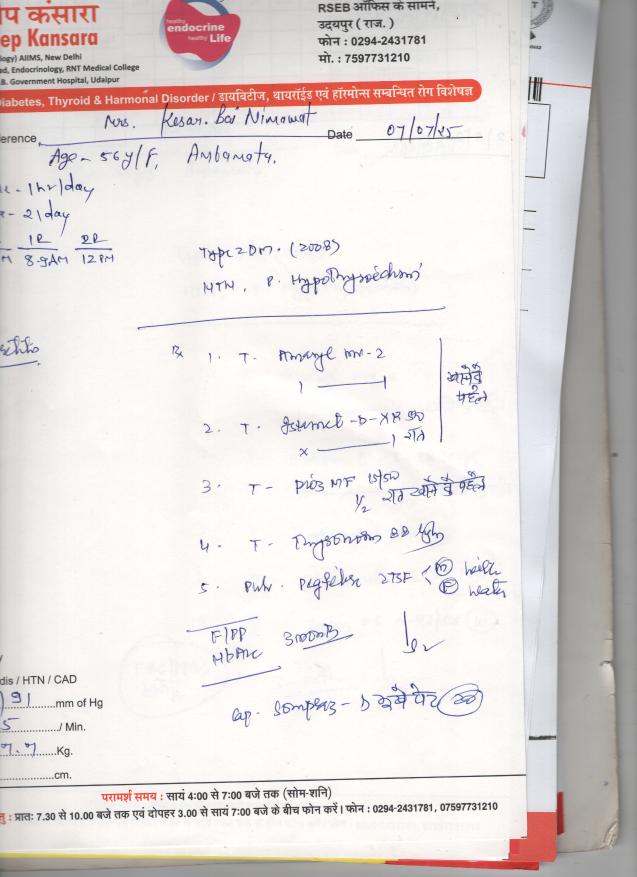 प कंसारा
ep Kansara
ogy) AIIMS, New Delhi
ad, Endocrinology, RNT Medical College
.B. Government Hospital, Udaipur
healthy
endocrine
healthy Life
RSEB ऑफिस के सामने,
उदयपुर ( राज. )
फोन : 0294-2431781
मो. : 7597731210
Diabetes, Thyroid & Harmonal Disorder / डायबिटीज, थायरॉईड एवं हॉरमोन्स सम्बन्धित रोग विशेषज्ञ
erence Mrs. Kesar Bai Nimawat Date 07/07/25
Age - 56y/F, Ambamata.
- 1hr/day
- 2/day
8-9AM 12PM
Type 2 DM. (2008)
HTN, P. Hypothyroidism
Rx 1. T. Amaryl MV-2
1 ——— 1
खाने के पहले
2. T. Istamet-D-XR
x ——— 1 रात
3. T- MF 15/500
1/2 रात खाने के पहले
4. T- Thyronorm 88
5. milk
water
F/PP
HbA1c
Cap. - D
dis / HTN / CAD
91 mm of Hg
5 / Min.
Kg.
cm.
परामर्श समय : सायं 4:00 से 7:00 बजे तक (सोम-शनि)
तु : प्रातः 7.30 से 10.00 बजे तक एवं दोपहर 3.00 से सायं 7:00 बजे के बीच फोन करें। फोन : 0294-2431781, 07597731210